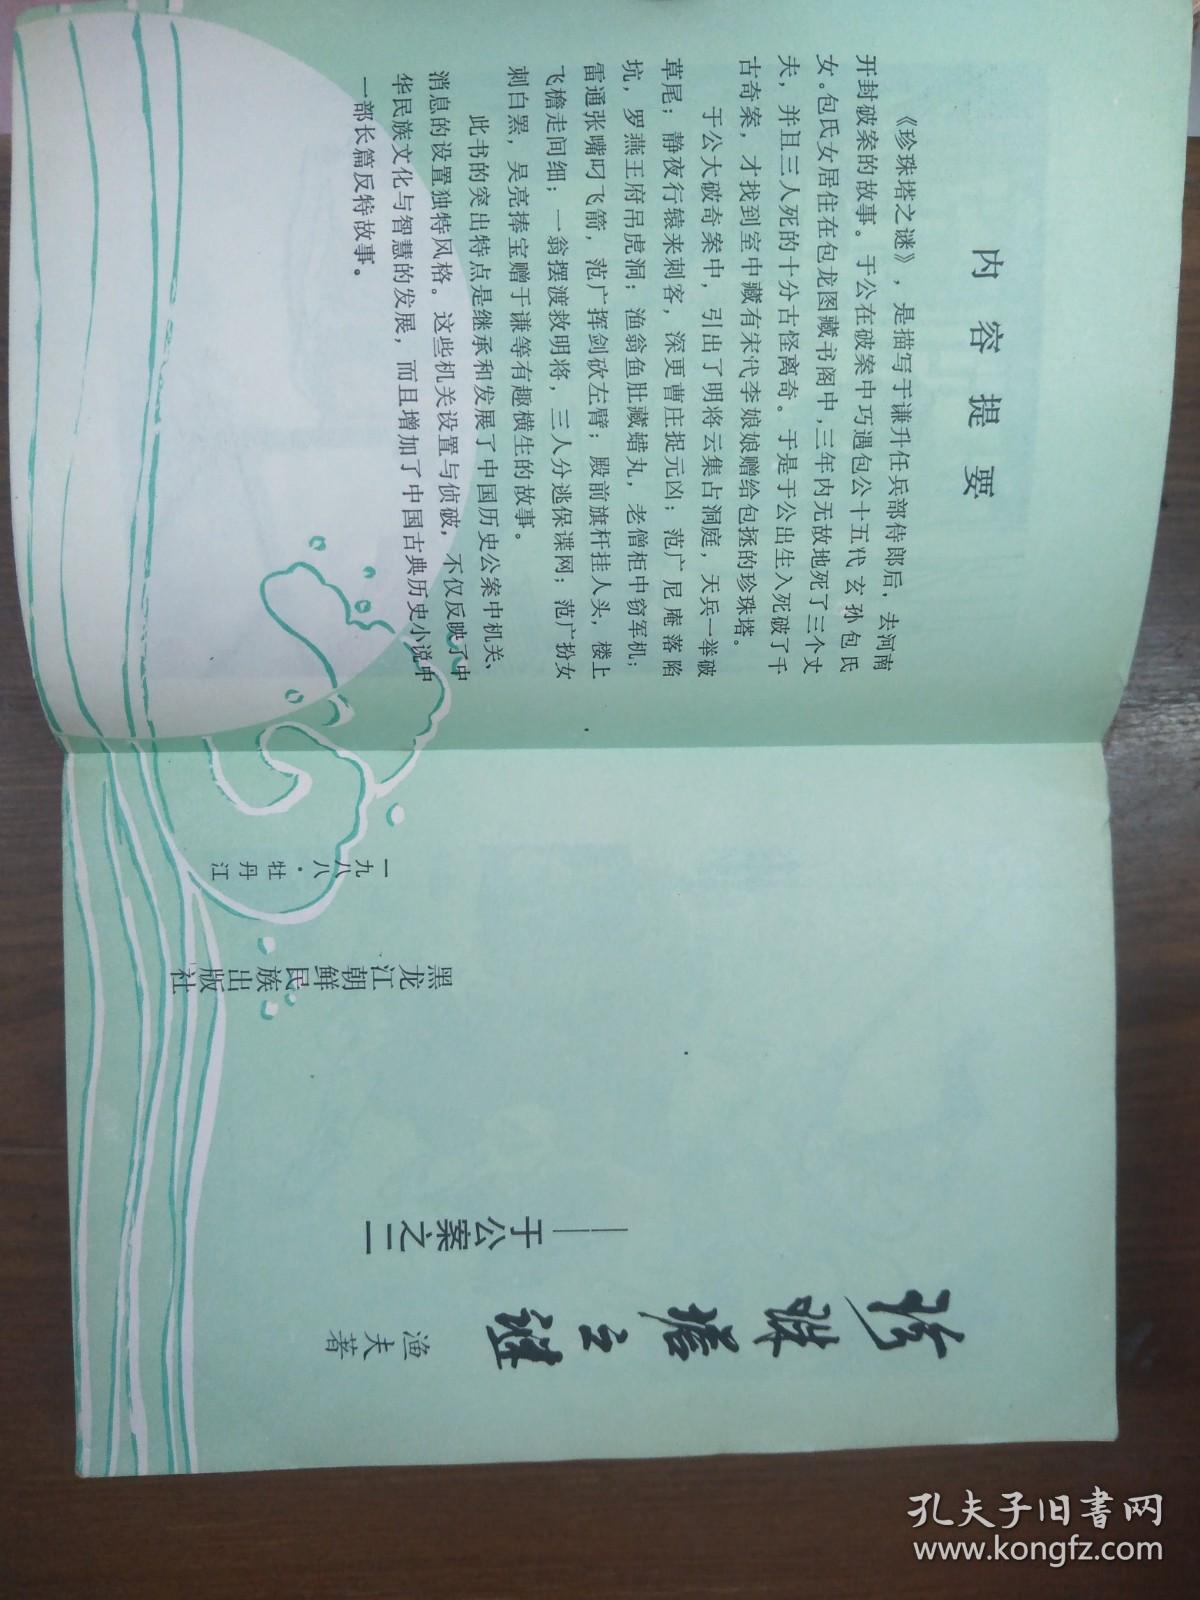 内容提要
《珍珠塔之谜》，是描写于谦升任兵部侍郎后，去河南
开封破案的故事。于公在破案中巧遇包公十五代玄孙包氏
女。包氏女居住在包龙图藏书阁中，三年内无故地死了三个丈
夫，并且三人死的十分古怪离奇。于是于公出生入死破了千
古奇案，才找到室中藏有宋代李娘娘赠给包拯的珍珠塔。
于公大破奇案中，引出了明将云集占洞庭，天兵一举破
草尾；静夜行辕来刺客，深更曹庄捉元凶；范广尼庵落陷
坑，罗燕王府吊虎洞；渔翁鱼肚藏蜡丸，老僧柜中窃军机；
雷通张嘴叼飞箭，范广挥剑砍左臂；殿前旗杆挂人头，楼上
飞檐走间细；一翁摆渡救明将，三人分逃保谍网；范广扮女
刺白罴，吴亮捧宝赠于谦等有趣横生的故事。
此书的突出特点是继承和发展了中国历史公案中机关、
消息的设置独特风格。这些机关设置与侦破，不仅反映了中
华民族文化与智慧的发展，而且增加了中国古典历史小说中
一部长篇反特故事。
珍珠塔之谜
——于公案之二
渔夫著
黑龙江朝鲜民族出版社
一九八八·牡丹江
孔夫子旧书网
www.kongfz.com